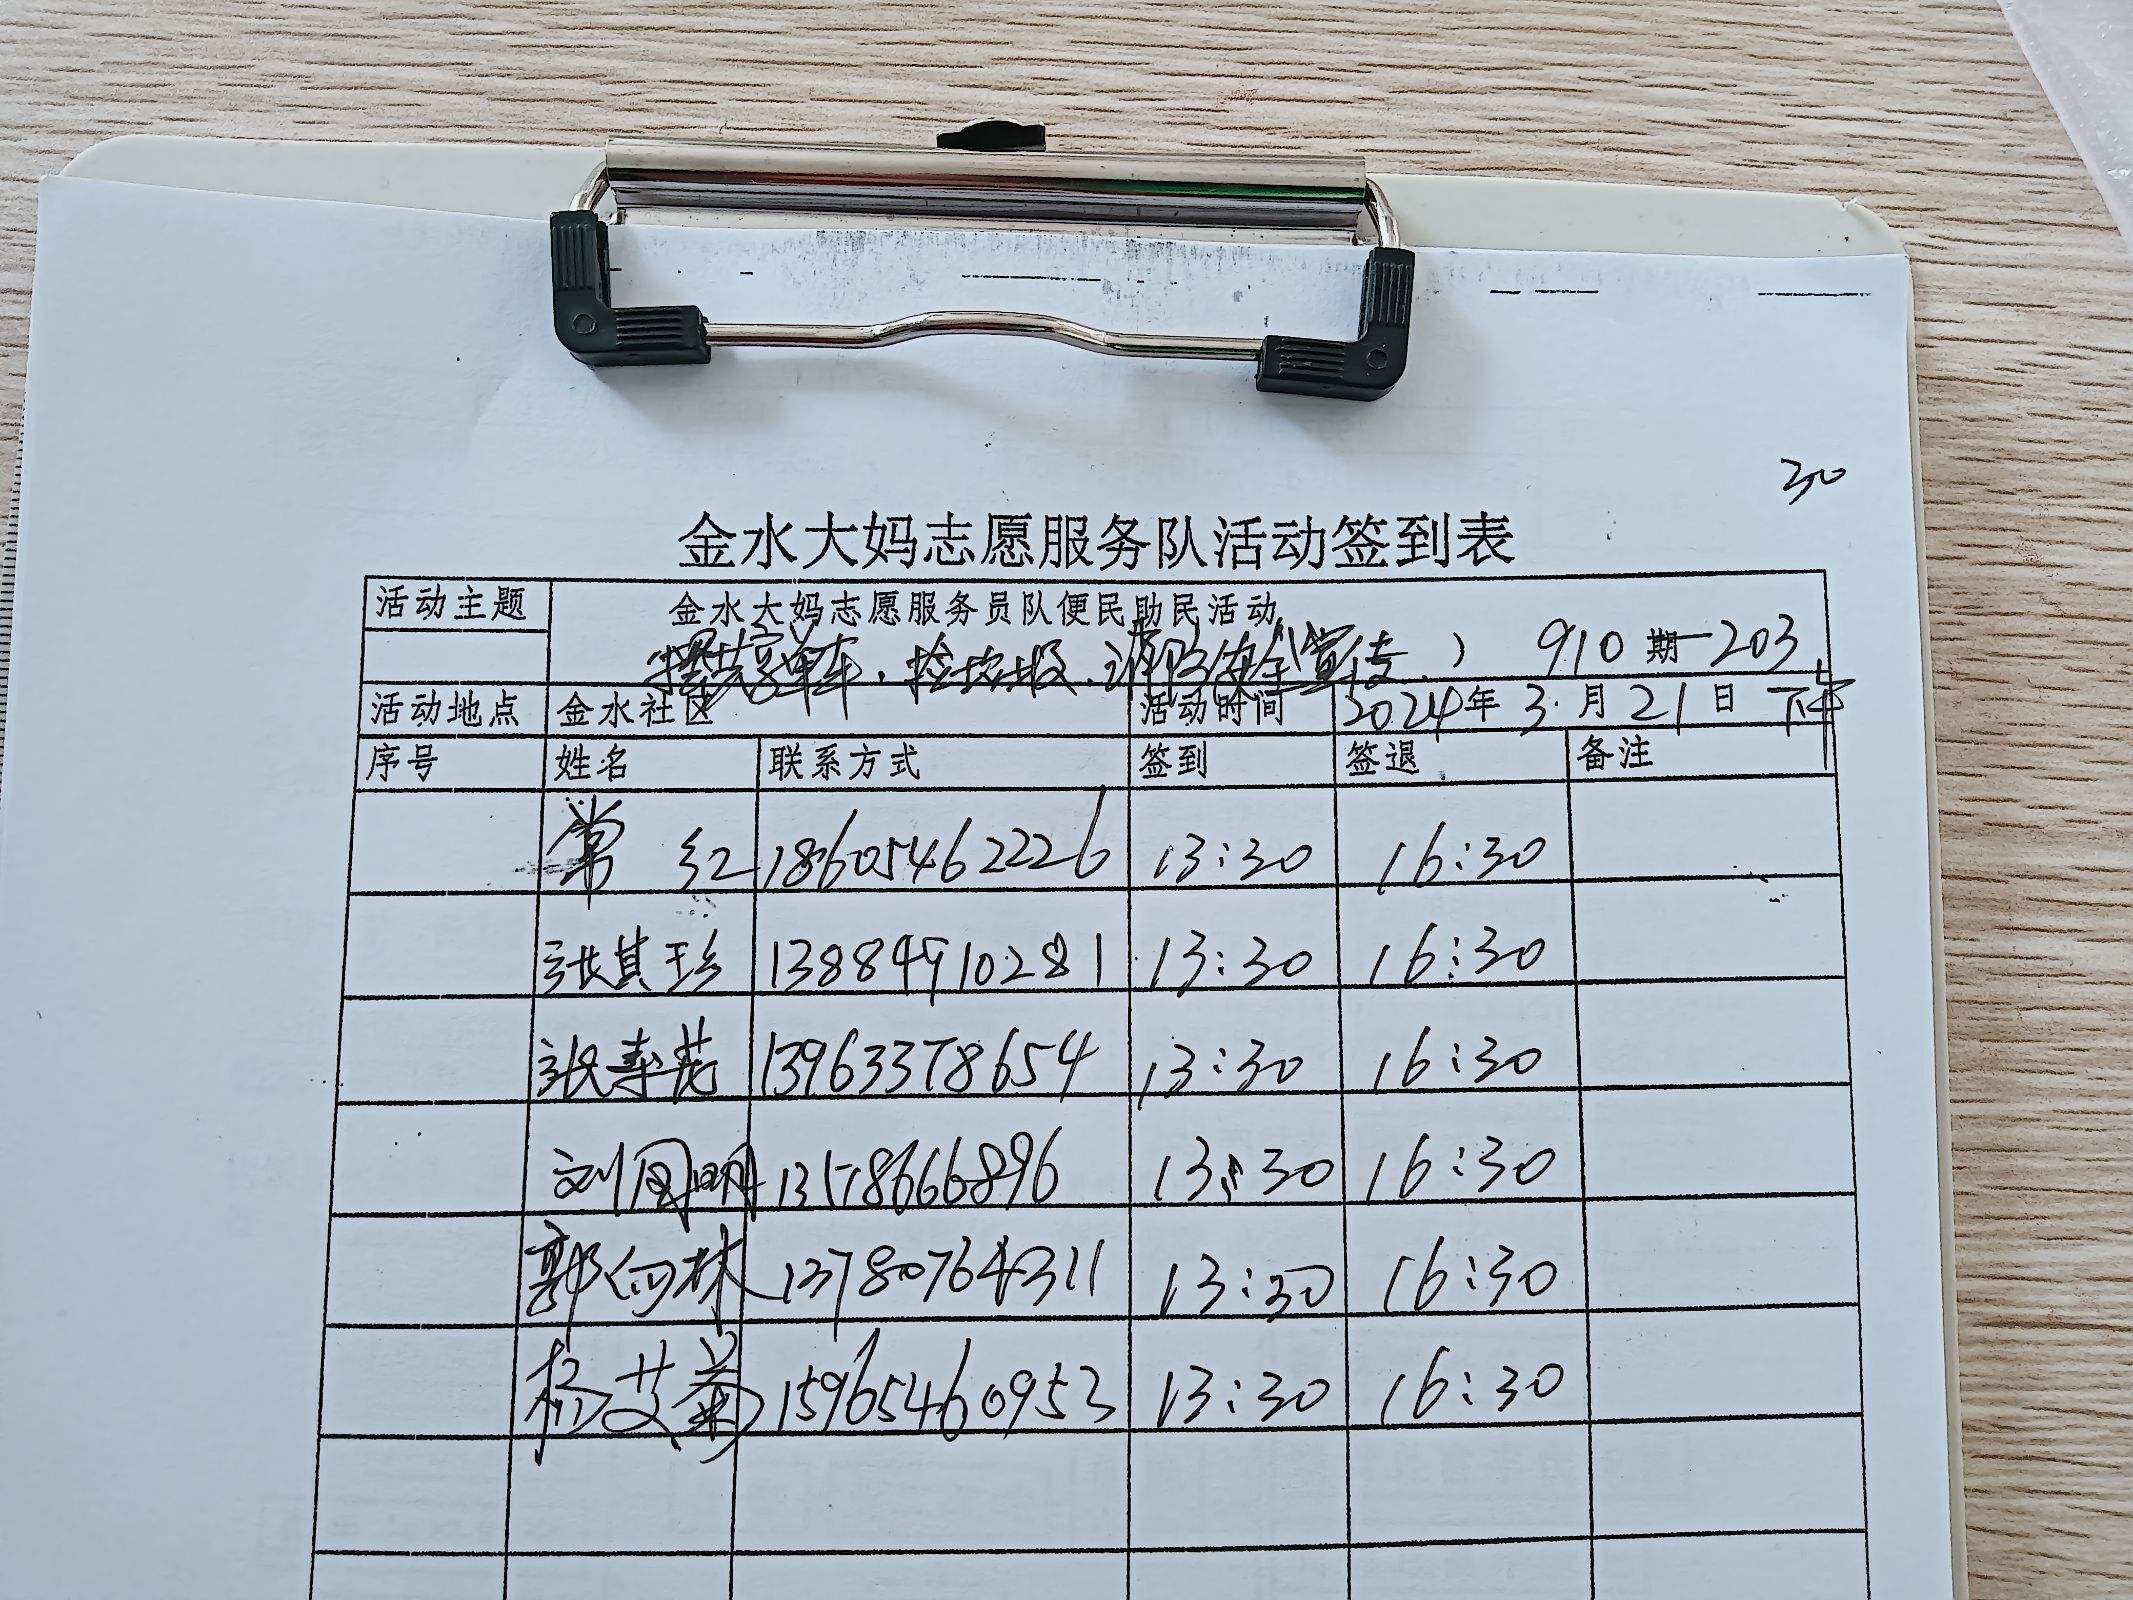 30
金水大妈志愿服务队活动签到表
活动主题 金水大妈志愿服务员队便民助民活动
(摆共享单车、捡垃圾、消防安全宣传) 910期-203
活动地点 金水社区 活动时间 2024年3月21日下午
序号 姓名 联系方式 签到 签退 备注
常红 18605462226 13:30 16:30
张其珍 13884910281 13:30 16:30
张寿花 13963378654 13:30 16:30
刘国明 13:30 16:30
郭向林 13780764311 13:30 16:30
杨艾菊 15965460953 13:30 16:30